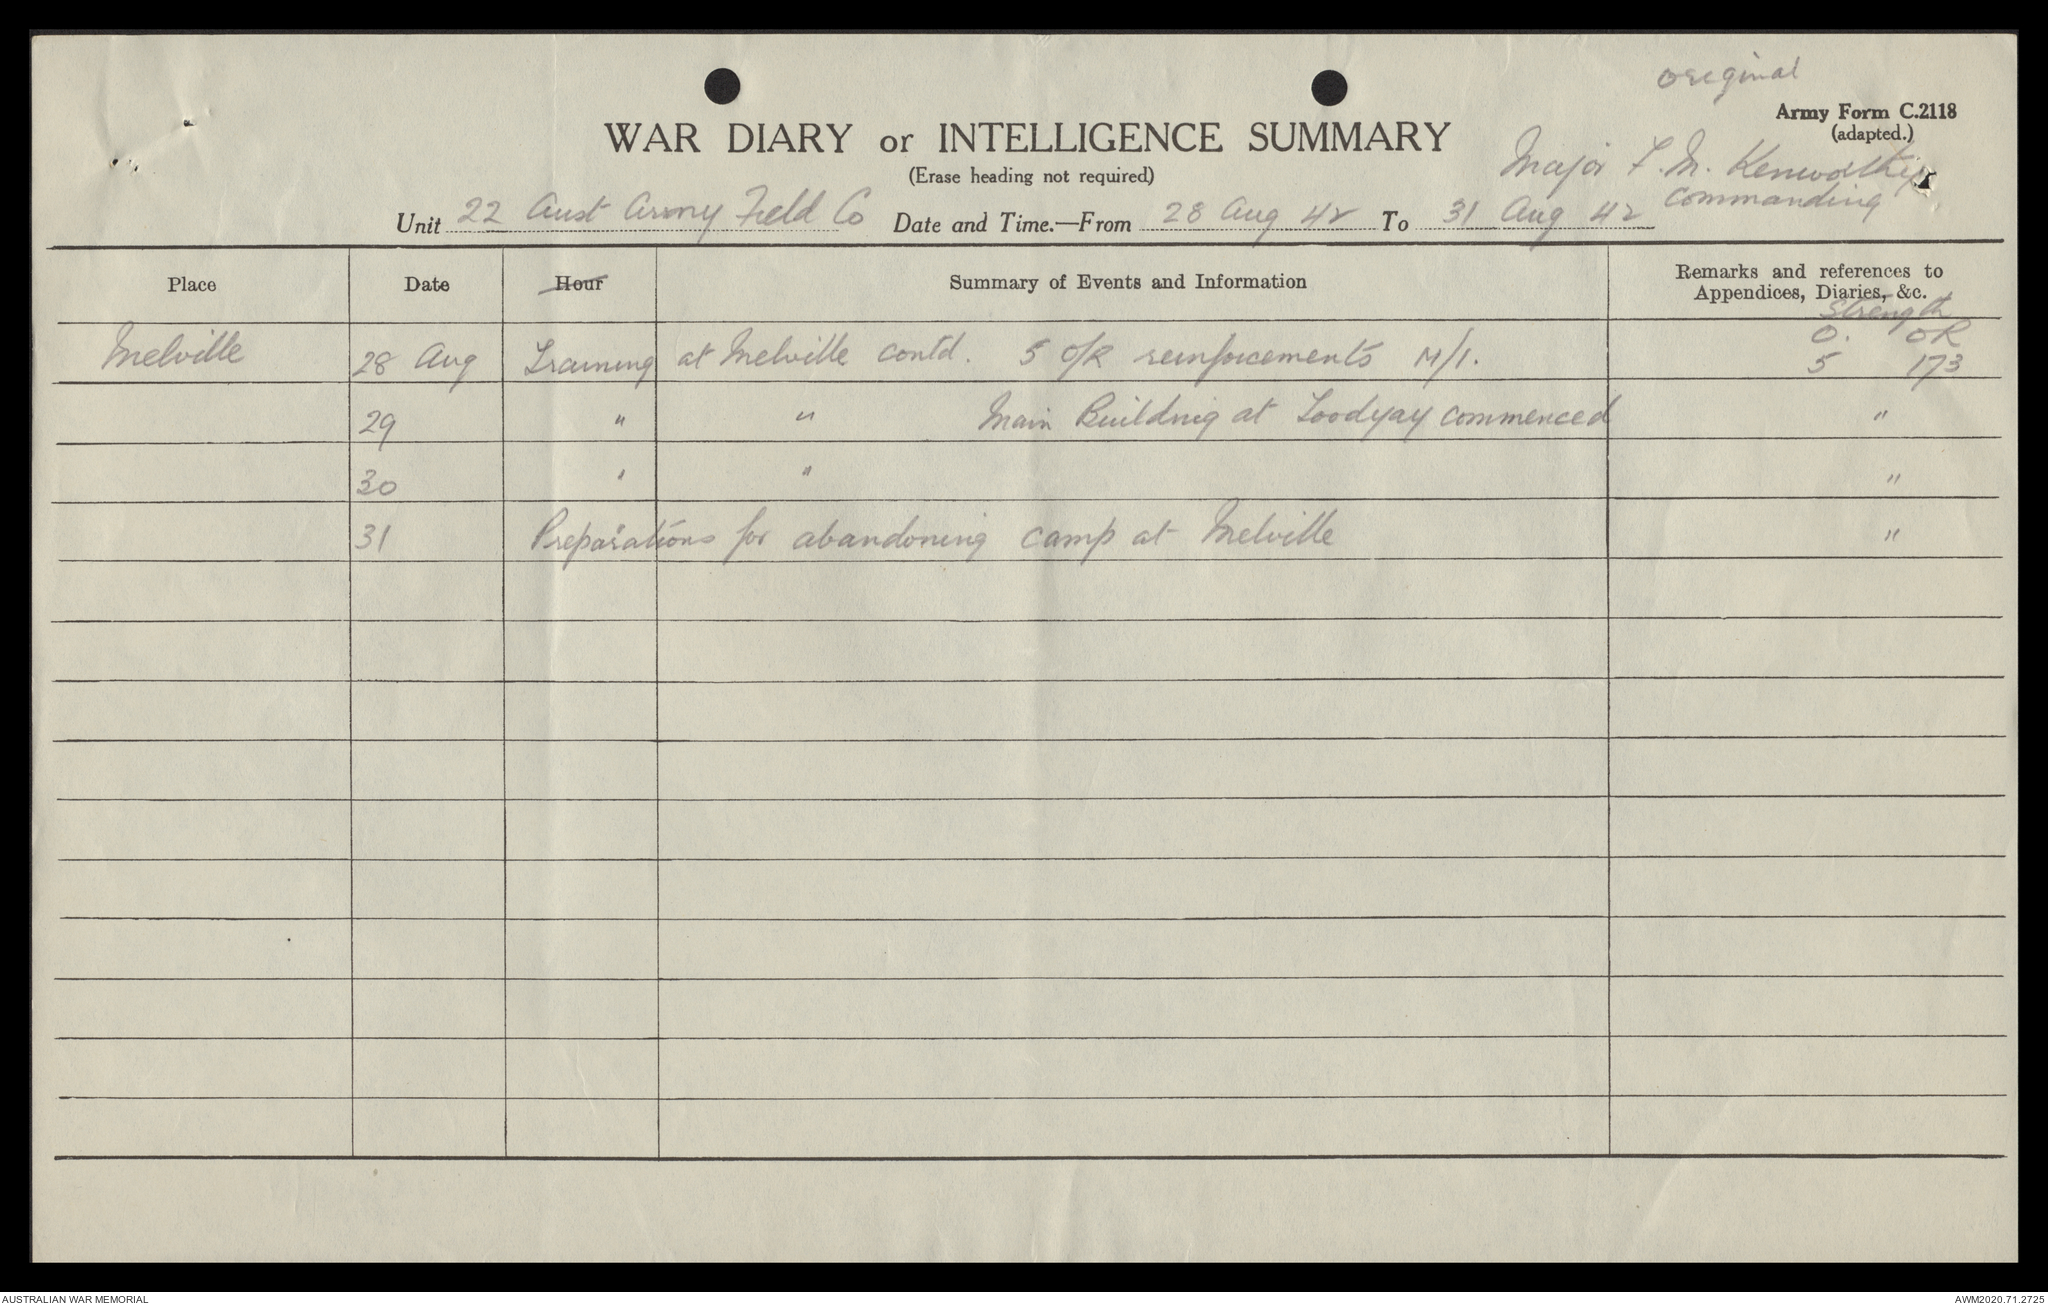 original
Army Form C.2118
(adapted.)
WAR DIARY or INTELLIGENCE SUMMARY
(Erase heading not required)
Major F. M. Kenworthy
commanding
Unit 22 Aust Army Field Co Date and Time.—From 28 Aug 42 To 31 Aug 42
Place Date Hour Summary of Events and Information Remarks and references to Appendices, Diaries, &c.
Strength
O. OR
Melville 28 Aug Training at Melville contd. 5 O/R reinforcements M/I. 5 173
29 " " Main Building at Toodyay commenced "
30 " " "
31 Preparations for abandoning camp at Melville "
AUSTRALIAN WAR MEMORIAL
AWM2020.71.2725